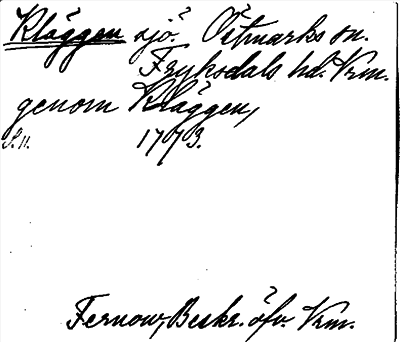 Kläggen sjö. Östmarks sn.
Fryksdals hd. Vrm.
genom Kläggen,
S. 11. 1773.
Fernow, Beskr. öfv. Vrm.